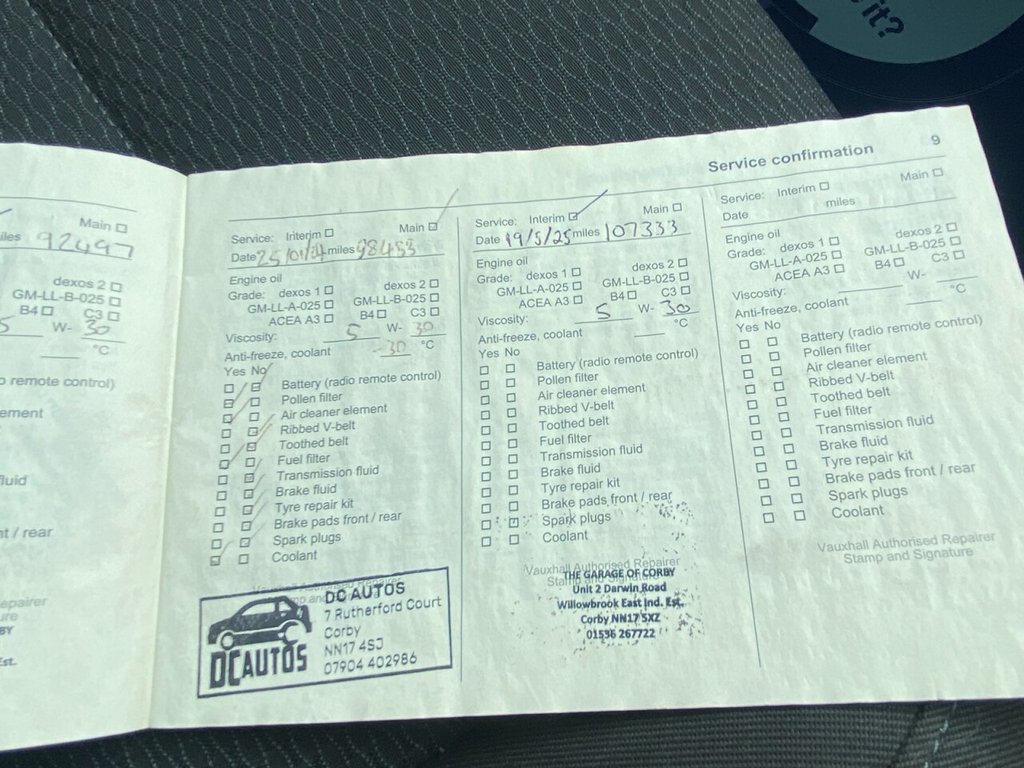 it?
Service confirmation 9
Main ☐
iles 92497
dexos 2 ☐
GM-LL-B-025 ☐
B4 ☐ C3 ☐
5 W- 30
°C
o remote control)
ement
fluid
nt / rear
epairer
ure
BY
Est.
Service: Interim ☐ Main ☐
Date 25/01/24 miles 98453
Engine oil
Grade: dexos 1 ☐ dexos 2 ☐
GM-LL-A-025 ☐ GM-LL-B-025 ☐
ACEA A3 ☐ B4 ☐ C3 ☐
Viscosity: 5 W- 30
Anti-freeze, coolant -30 °C
Yes No
Battery (radio remote control)
Pollen filter
Air cleaner element
Ribbed V-belt
Toothed belt
Fuel filter
Transmission fluid
Brake fluid
Tyre repair kit
Brake pads front / rear
Spark plugs
Coolant
Vauxhall Authorised Repairer
DC AUTOS
7 Rutherford Court
Corby
NN17 4SJ
07904 402986
DC AUTOS
Service: Interim ☑ Main ☐
Date 19/5/25 miles 107333
Engine oil
Grade: dexos 1 ☐ dexos 2 ☐
GM-LL-A-025 ☐ GM-LL-B-025 ☐
ACEA A3 ☐ B4 ☐ C3 ☐
Viscosity: 5 W- 30
Anti-freeze, coolant °C
Yes No
Battery (radio remote control)
Pollen filter
Air cleaner element
Ribbed V-belt
Toothed belt
Fuel filter
Transmission fluid
Brake fluid
Tyre repair kit
Brake pads front / rear
Spark plugs
Coolant
Vauxhall Authorised Repairer
Stamp and Signature
THE GARAGE OF CORBY
Unit 2 Darwin Road
Willowbrook East Ind. Est.
Corby NN17 5XZ
01536 267722
Service: Interim ☐ Main ☐
Date miles
Engine oil
Grade: dexos 1 ☐ dexos 2 ☐
GM-LL-A-025 ☐ GM-LL-B-025 ☐
ACEA A3 ☐ B4 ☐ C3 ☐
Viscosity: W-
Anti-freeze, coolant °C
Yes No
Battery (radio remote control)
Pollen filter
Air cleaner element
Ribbed V-belt
Toothed belt
Fuel filter
Transmission fluid
Brake fluid
Tyre repair kit
Brake pads front / rear
Spark plugs
Coolant
Vauxhall Authorised Repairer
Stamp and Signature